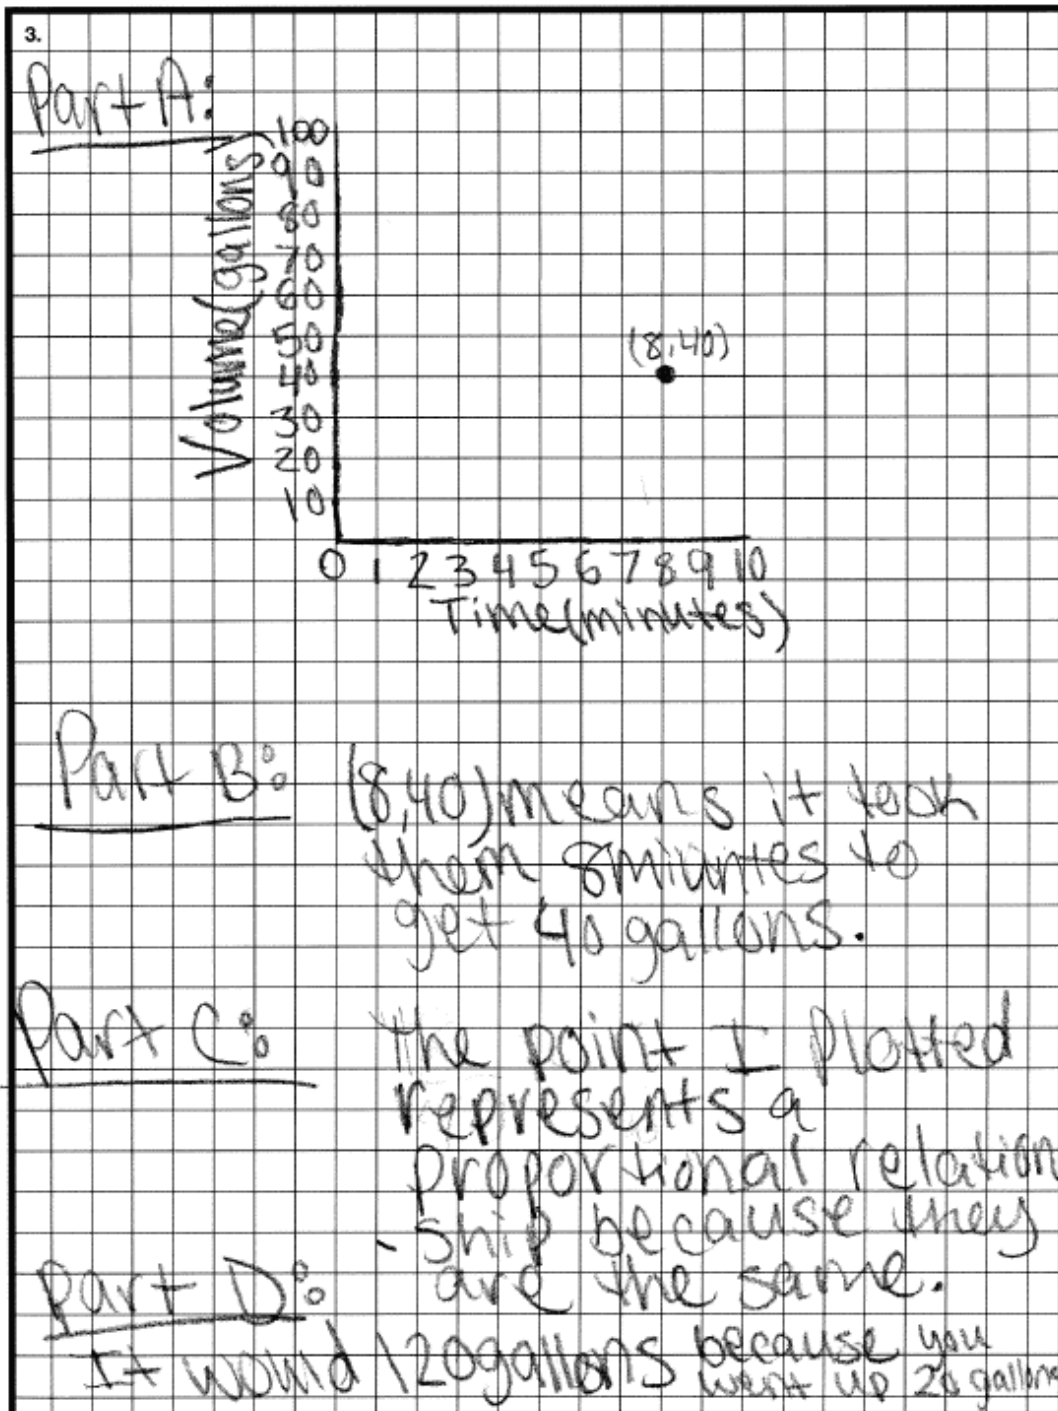 3.
Part A:
Volume(gallons)
100
90
80
70
60
50
40
30
20
10
(8,40)
0 1 2 3 4 5 6 7 8 9 10
Time(minutes)
Part B: (8,40) means it took
them 8 miuntes to
get 40 gallons.
Part C: the point I plotted
represents a
proportional relation
-ship because they
are the same.
Part D:
It would 120 gallons because you
went up 20 gallons